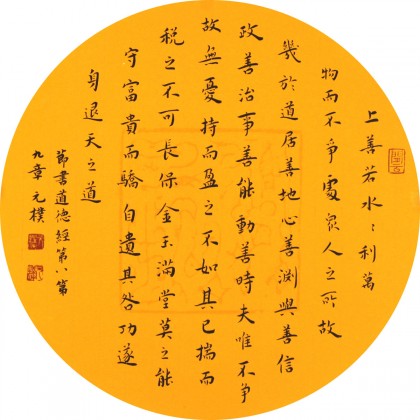 上善若水〻利萬
物而不爭處眾人之所故
幾於道居善地心善淵與善信
政善治事善能動善時夫唯不爭
故無憂持而盈之不如其已揣而
税之不可長保金玉滿堂莫之能
守富貴而驕自遺其咎功遂
身退天之道
節書道德經第八第
九章元樸